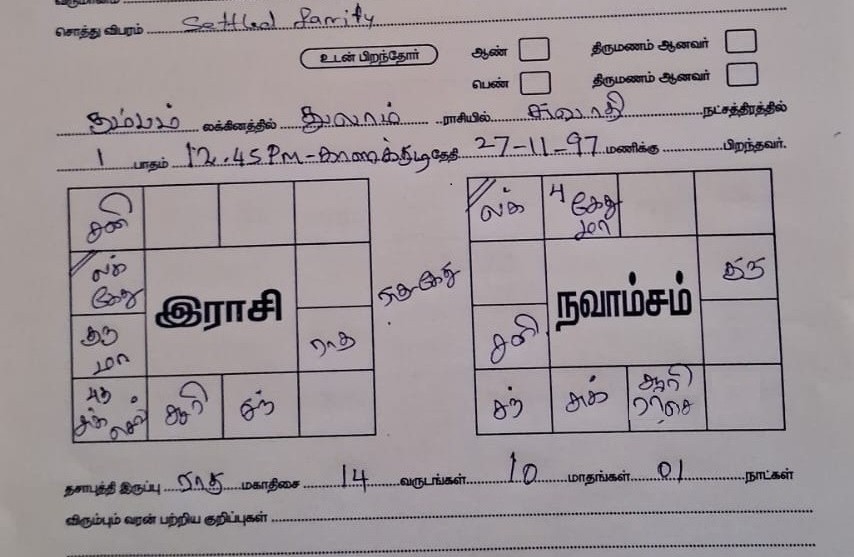 சொத்து விபரம் Settled Family
உடன் பிறந்தோர் ஆண் திருமணம் ஆனவர்
பெண் திருமணம் ஆனவர்
கும்பம் லக்கினத்தில் துலாம் ராசியில் சுவாதி நட்சத்திரத்தில்
1 பாதம் 12.45 PM - காரைக்குடி தேதி 27-11-97 மணிக்கு பிறந்தவர்.
சனி
லக் கேது
குரு மா
ராகு
சுக் செவ் சூரி சந்
இராசி
லக் 4 கேது மா
குரு
சனி
சந் சுக் சூரி
நவாம்சம்
தசாபுத்தி இருப்பு ராகு மகாதிசை 14 வருடங்கள் 10 மாதங்கள் 01 நாட்கள்
விரும்பும் வரன் பற்றிய குறிப்புகள்